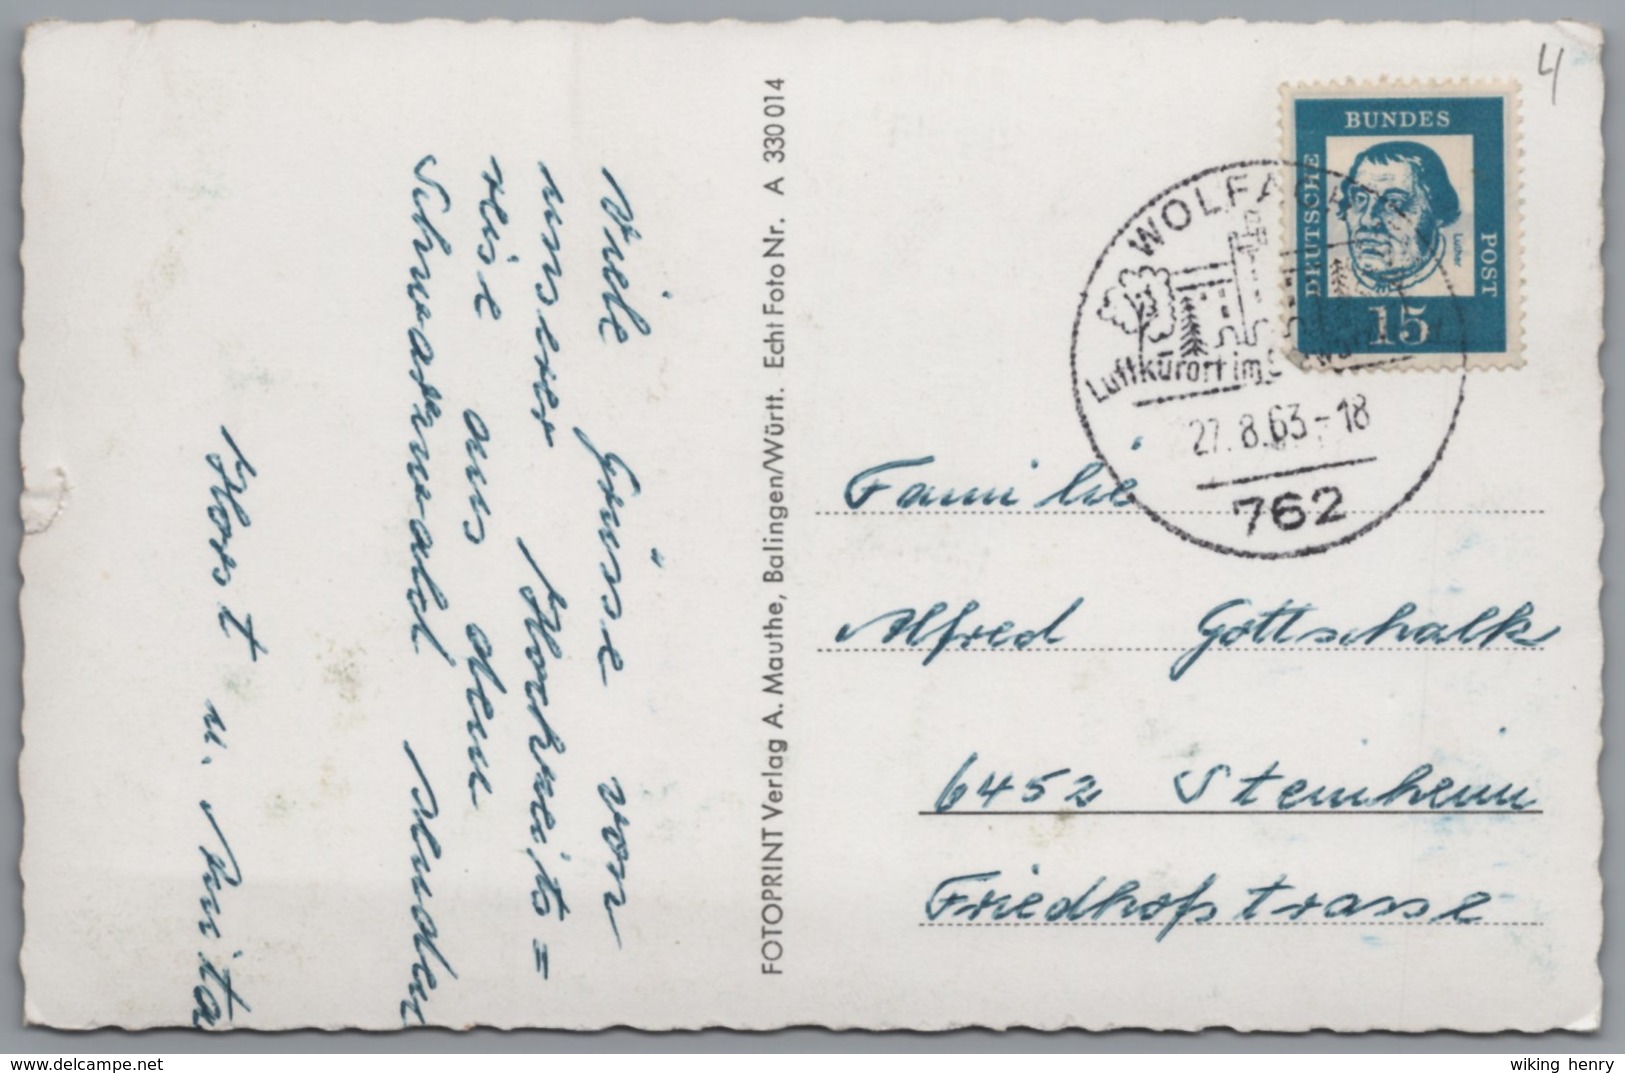 Viele Grüsse von
unserer Hochzeits=
reise aus dem
Schwarzwald senden
Horst u. Anita
FOTOPRINT Verlag A. Mauthe, Balingen/Württ. Echt Foto Nr. A 330 014
4
BUNDES
DEUTSCHE
POST
Luther
15
WOLFACH
Luftkurort im Schwarzwald
27.8.63-18
762
Familie
Alfred Gottschalk
6452 Steinheim
Friedhofstrasse
delcampe.net
wiking henry